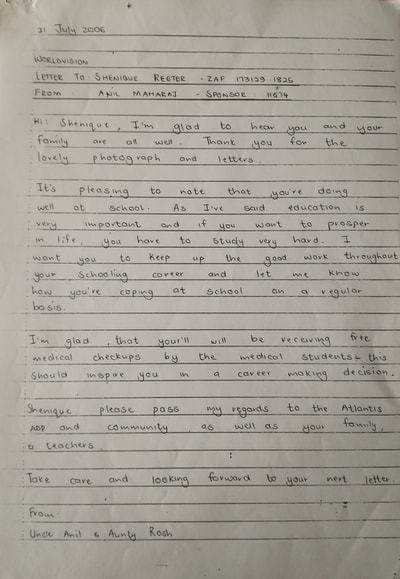 21 July 2006
WORLDVISION
LETTER TO: SHENIQUE REGTER - ZAF 173129-1825
FROM ANIL MAHARAJ - SPONSOR: 11674
Hi: Shenique, I'm glad to hear you and your
family are all well. Thank you for the
lovely photograph and letters.
It's pleasing to note that you're doing
well at school. As I've said education is
very important and if you want to prosper
in life, you have to study very hard. I
want you to keep up the good work throughout
your schooling career and let me know
how you're coping at school on a regular
basis.
I'm glad, that your'll will be receiving free
medical checkups by the medical students - this
should inspire you in a career making decision.
Shenique please pass my regards to the Atlantis
ADP and community, as well as your family,
& teachers.
Take care and looking forward to your next letter.
From
Uncle Anil & Aunty Rosh